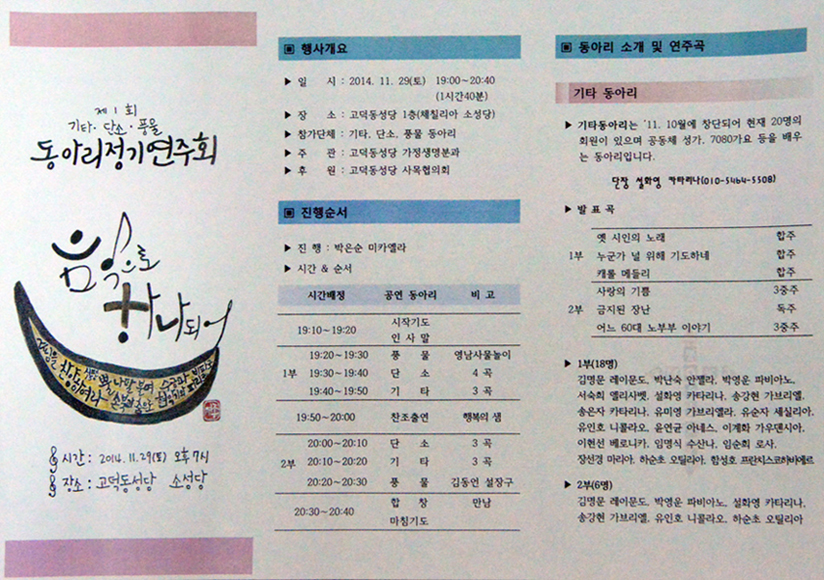 제1회
기타·단소·풍물
동아리정기연주회
음악으로
하나되어
시간: 2014.11.29(토) 오후7시
장소: 고덕동성당 소성당
▣ 행사개요
▶ 일 시 : 2014. 11. 29(토) 19:00~20:40
(1시간40분)
▶ 장 소 : 고덕동성당 1층(체칠리아 소성당)
▶ 참가단체 : 기타, 단소, 풍물 동아리
▶ 주 관 : 고덕동성당 가정생명분과
▶ 후 원 : 고덕동성당 사목협의회
▣ 진행순서
▶ 진 행 : 박은순 미카엘라
▶ 시간 & 순서
시간배정 공연 동아리 비 고
19:10~19:20 시작기도
인 사 말
19:20~19:30 풍 물 영남사물놀이
1부 19:30~19:40 단 소 4 곡
19:40~19:50 기 타 3 곡
19:50~20:00 찬조출연 행복의 샘
20:00~20:10 단 소 3 곡
2부 20:10~20:20 기 타 3 곡
20:20~20:30 풍 물 김동언 설장구
20:30~20:40 합 창 만남
마침기도
▣ 동아리 소개 및 연주곡
기타 동아리
▶ 기타동아리는 '11. 10월에 창단되어 현재 20명의
회원이 있으며 공동체 성가, 7080가요 등을 배우
는 동아리입니다.
단장 설화영 카타리나(010-5464-5508)
▶ 발 표 곡
옛 시인의 노래 합주
1부 누군가 널 위해 기도하네 합주
캐롤 메들리 합주
사랑의 기쁨 3중주
2부 금지된 장난 독주
어느 60대 노부부 이야기 3중주
▶ 1부(18명)
김명문 레이문도, 박난숙 안젤라, 박영운 파비아노,
서숙희 엘리사벳, 설화영 카타리나, 송강현 가브리엘,
송은자 카타리나, 유미영 가브리엘라, 유순자 세실리아,
유인호 니콜라오, 윤연균 아네스, 이계화 가우덴시아,
이현선 베로니카, 임명식 수산나, 임순희 로사,
장선경 마리아, 하순초 오틸리아, 함성호 프란치스코하비에르
▶ 2부(6명)
김명문 레이문도, 박영운 파비아노, 설화영 카타리나,
송강현 가브리엘, 유인호 니콜라오, 하순초 오틸리아